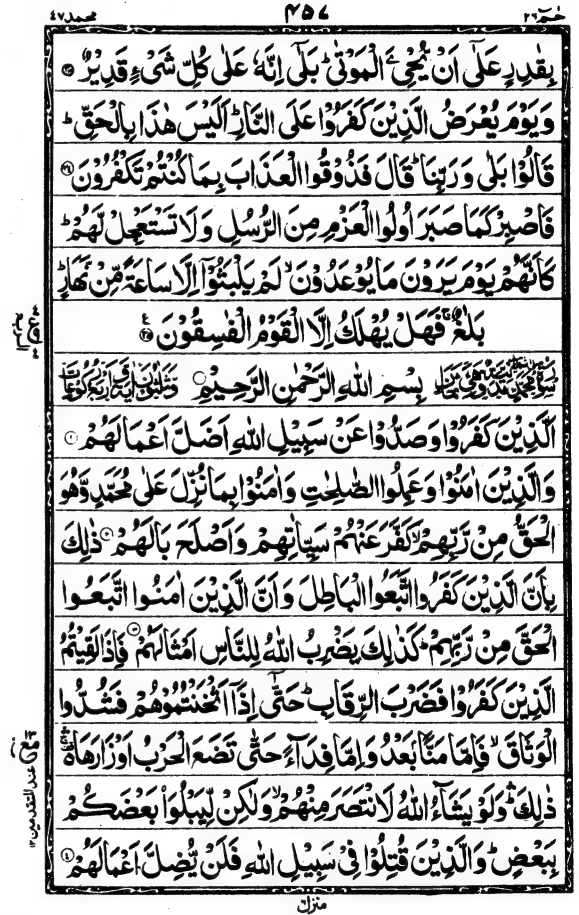 محمد ٤٧
٤٥٨
حٰمٓ ٢٦
بِقٰدِرٍ عَلٰٓى اَنْ يُّحْيِۦَ الْمَوْتٰى ؕ بَلٰٓى اِنَّهٗ عَلٰى كُلِّ شَىْءٍ قَدِيْرٌ ﴿٣٣﴾
وَيَوْمَ يُعْرَضُ الَّذِيْنَ كَفَرُوْا عَلَى النَّارِ ؕ اَلَيْسَ هٰذَا بِالْحَقِّ ؕ
قَالُوْا بَلٰى وَرَبِّنَا ؕ قَالَ فَذُوْقُوا الْعَذَابَ بِمَا كُنْتُمْ تَكْفُرُوْنَ ﴿٣٤﴾
فَاصْبِرْ كَمَا صَبَرَ اُولُوا الْعَزْمِ مِنَ الرُّسُلِ وَلَا تَسْتَعْجِلْ لَّهُمْ ؕ
كَاَنَّهُمْ يَوْمَ يَرَوْنَ مَا يُوْعَدُوْنَ ۙ لَمْ يَلْبَثُوْٓا اِلَّا سَاعَةً مِّنْ نَّهَارٍ ؕ
بَلٰغٌ ۚ فَهَلْ يُهْلَكُ اِلَّا الْقَوْمُ الْفٰسِقُوْنَ ﴿٣٥﴾
بِسْمِ اللهِ الرَّحْمٰنِ الرَّحِيْمِ
اَلَّذِيْنَ كَفَرُوْا وَصَدُّوْا عَنْ سَبِيْلِ اللهِ اَضَلَّ اَعْمَالَهُمْ ﴿١﴾
وَالَّذِيْنَ اٰمَنُوْا وَعَمِلُوا الصّٰلِحٰتِ وَاٰمَنُوْا بِمَا نُزِّلَ عَلٰى مُحَمَّدٍ وَّهُوَ
الْحَقُّ مِنْ رَّبِّهِمْ ۙ كَفَّرَ عَنْهُمْ سَيِّاٰتِهِمْ وَاَصْلَحَ بَالَهُمْ ﴿٢﴾ ذٰلِكَ
بِاَنَّ الَّذِيْنَ كَفَرُوا اتَّبَعُوا الْبَاطِلَ وَاَنَّ الَّذِيْنَ اٰمَنُوا اتَّبَعُوا
الْحَقَّ مِنْ رَّبِّهِمْ ؕ كَذٰلِكَ يَضْرِبُ اللهُ لِلنَّاسِ اَمْثَالَهُمْ ﴿٣﴾ فَاِذَا لَقِيْتُمُ
الَّذِيْنَ كَفَرُوْا فَضَرْبَ الرِّقَابِ ؕ حَتّٰٓى اِذَآ اَثْخَنْتُمُوْهُمْ فَشُدُّوا
الْوَثَاقَ ۙ فَاِمَّا مَنًّۢا بَعْدُ وَاِمَّا فِدَآءً حَتّٰى تَضَعَ الْحَرْبُ اَوْزَارَهَا
ذٰلِكَ ؕ وَلَوْ يَشَآءُ اللهُ لَانْتَصَرَ مِنْهُمْ ۙ وَلٰكِنْ لِّيَبْلُوَا۟ بَعْضَكُمْ
بِبَعْضٍ ؕ وَالَّذِيْنَ قُتِلُوْا فِىْ سَبِيْلِ اللهِ فَلَنْ يُّضِلَّ اَعْمَالَهُمْ ﴿٤﴾
منزل